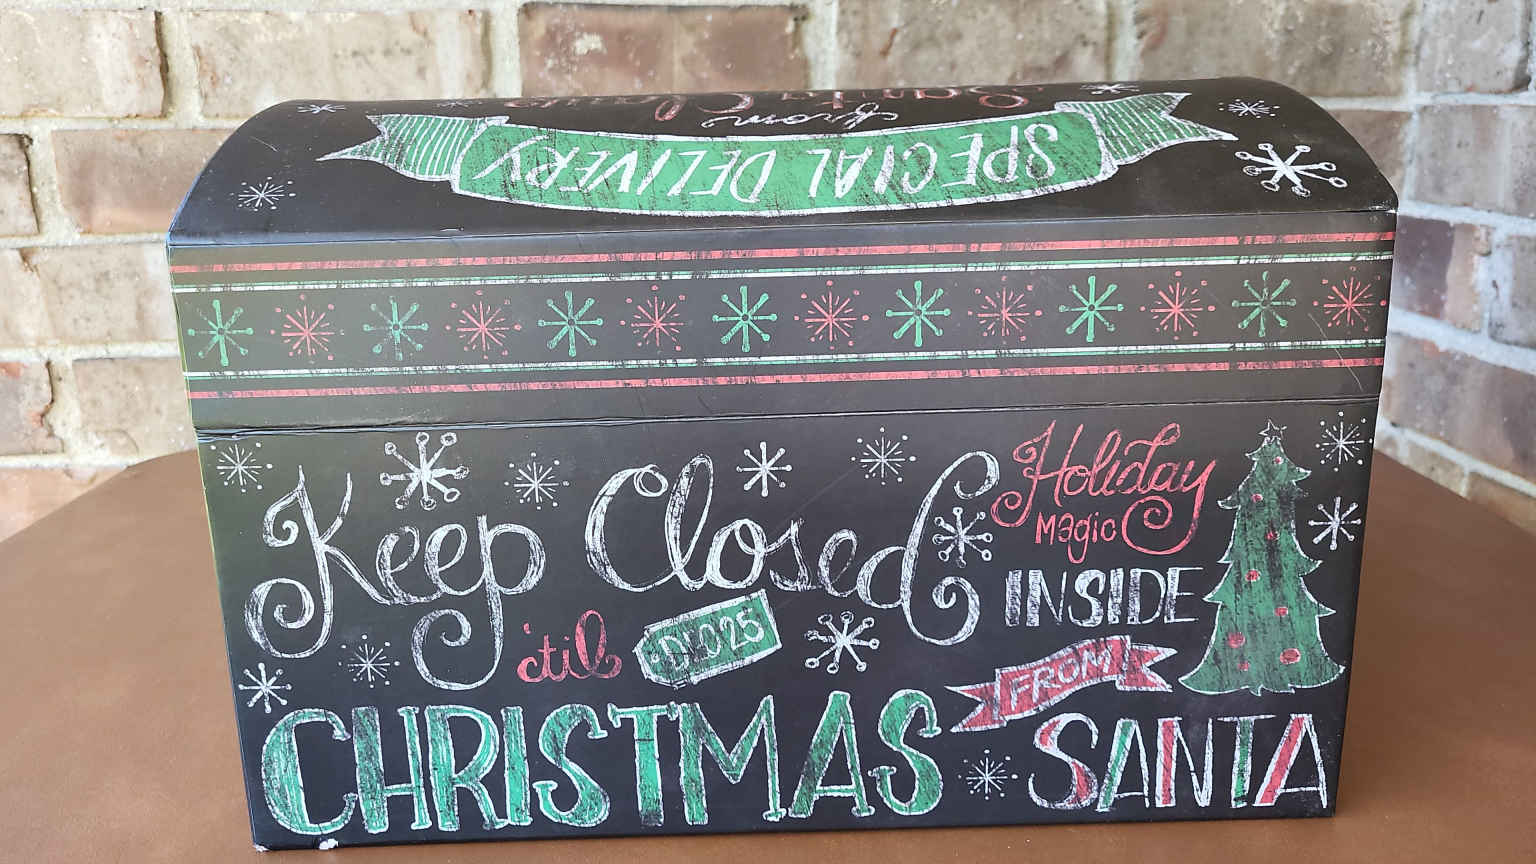 Santa Claus
from
SPECIAL DELIVERY
Keep Closed
'til DEC 25
CHRISTMAS
Holiday
Magic
INSIDE
FROM
SANTA